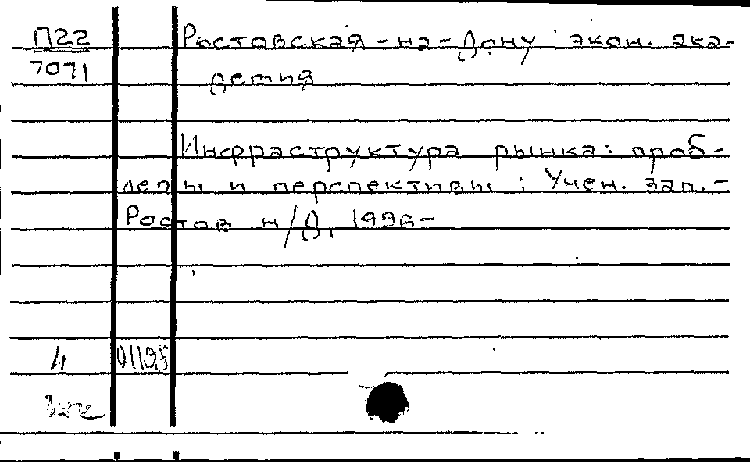 П22
7071
Ростовская-на-Дону экон. ака-
демия
Инфраструктура рынка: проб-
лемы и перспективы: Учен. зап.-
Ростов н/Д, 1996-